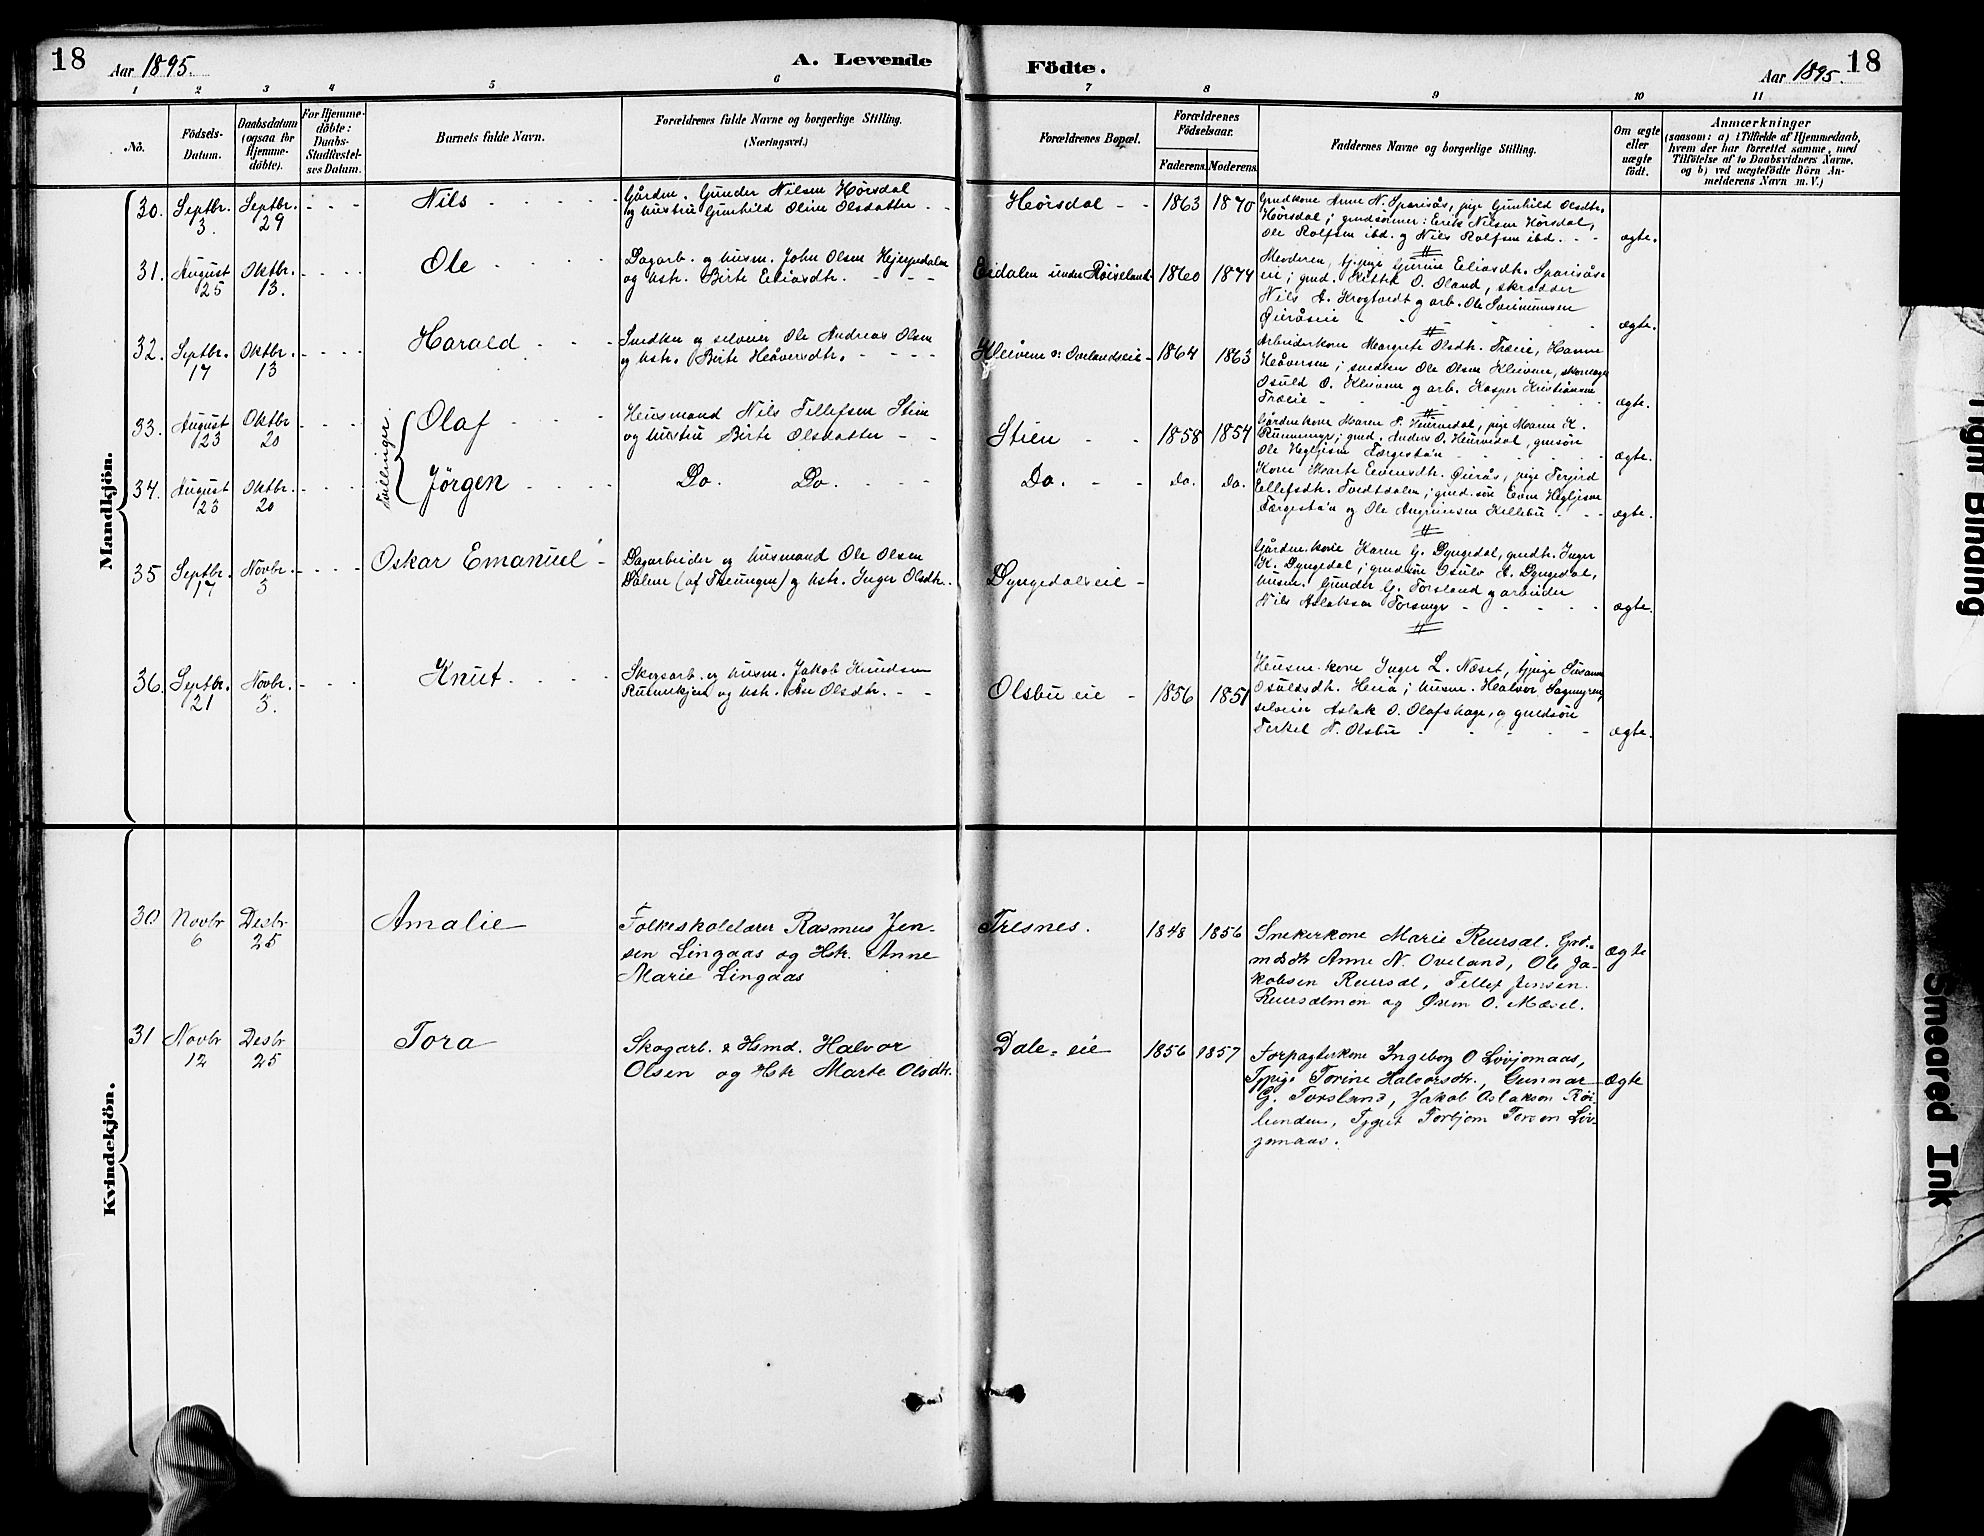 18
Aar 1895.
A. Levende
Födte.
Aar 1895.
18
1 2 3 4 5 6 7 8 9 10 11
No.
Födsels-
Datum.
Daabsdatum
(ogsaa for
Hjemme-
döbte).
For Hjemme-
döbte:
Daabs-
Stadfæstel-
ses Datum.
Barnets fulde Navn.
Forældrenes fulde Navne og borgerlige Stilling.
(Næringsvei.)
Forældrenes Bopæl.
Forældrenes
Födselsaar.
Faderens.
Moderens.
Faddernes Navne og borgerlige Stilling.
Om ægte
eller
uægte
født.
Anmærkninger
(saasom: a) i Tilfælde af Hjemmedaab,
hvem der har forrettet samme, med
Tilföielse af to Daabsvidners Navne.
og b) ved uægtefödte Börn An-
melderens Navn m. V.)
Mandkjön.
30. Septbr. 3. Septbr. 29 Nils
Gårdm. Gunder Nilsen Hørsdal
og hustru Gunhild Oline Olsdatter
Hørsdal 1863 1870
Grmdkone Anne N. Sparsås, pige Gunhild Olsdtr.
Hørsdal; grmdsønner: Erik Nilsen Hørsdal,
Ole Rolfsen ibd. og Nils Rolfsen ibd. ægte.
31. August 25 Oktbr. 13. Ole
Dagarb. og husm. John Olsen
og hstr. Birte Eliasdtr.
Eidalen under Røiseland 1860 1874
Moderen, tj.pige Gurine Eliasdtr. Sparsås-
eie; grmd. O. Oland, skrædder
Nils A. Krogtvedt og arb. Ole
ægte.
32. Septbr. 17 Oktbr. 13 Harald
Snedker og selveier Ole Andreas Olsen
og hstr. Birte Håversdtr.
Kleivene u: Ovelandseie 1864 1863
Arbeiderkone Margrete Olsdtr. Træeie, Hanne
Håversen; snedker Ole Olsen Kleivene, skomager
Osuld O. Kleivene og arb. Kasper Kristiansen
Træeie ægte.
Tvillinger
33. August 23 Oktbr. 20 Olaf
Husmand Nils Tellefsen Stien
og hustru Birte Olsdatter
Stien 1858 1854
Gårdm.kone Maren P. pige Maren K.
grmd. Anders O. grmdsøn
Ole ægte.
34. August 23 Oktbr. 20 Jørgen
Do. Do. Do. do. do.
Kone Marte Eivindsdtr. Øirås, pige Terjerd
Ellefsdtr. Tvedtdalen; grmd.søn Even
og Ole Kellebu ægte.
35 Septbr. 17 Novbr. 3 Oskar Emanuel
Dagarbeider og husmand Ole Olsen
Dalene (af Treungen) og hstr. Inger Olsdtr.
Dyngedalseie
Gårdm.kone Karen G. Dyngedal, grmdtr. Inger
K. Dyngedal; grmdsøn Osulv A. Dyngedal,
husm. Gunder G. Forsland og arbeider
Nils Aslaksen Forsmyr ægte.
36. Septbr. 21 Novbr. 3. Knut
Skogsarb. og husm. Jakob Knudsen
og hstr. Olsdtr.
Olsbu eie 1856 1851
Husm.kone Inger L. Næset, tj.pige Susanne
Osuldsdtr. husm. Halvor Sagmyren,
selveier Aslak O. Olafshage, og grmdsøn
Terkel N. Olsbu ægte.
Kvindekjön.
30 Novbr 6 Desbr 25 Amalie
Folkeskolelærer Rasmus Jen-
sen Lingaas og Hstr. Anne
Marie Lingaas
Tresnes. 1848 1856
Snekerkone Marie Reursdl. Grd.-
mdsdtr Anne N. Oveland, Ole Ja-
kobsen Reursdl, Tellef Jensen
Reursdlmon og Øsem O. Mæsel. Ægte
31 Novbr 12 Desbr 25 Tora
Skogarb. & Hsmd. Halvor
Olsen og Hstr Marte Olsdtr.
Dale-eie 1856 1857
Forpagterkone Ingeborg O Løvjomaas,
Tjpige Torine Halvorsdtr., Gunnar
G. Forsland, Jakob Aslaksen Røi-
lunden, Torbjørn Tersen Løv-
jomaas. Ægte
Tight Binding
Smeared Ink